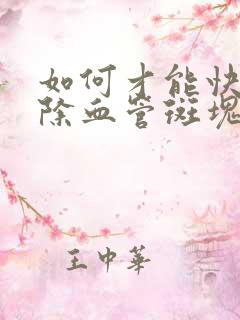 如何才能快
除血管斑塊
王中華